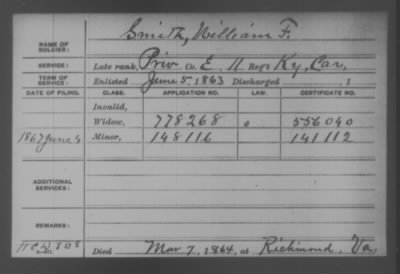 Smith, William F.
NAME OF SOLDIER:
SERVICE: Late rank, Priv Co. E, 11 Reg't Ky. Cav.
TERM OF SERVICE: Enlisted June 5, 1863 Discharged , 1
DATE OF FILING. CLASS. APPLICATION NO. LAW. CERTIFICATE NO.
Invalid,
Widow, 778268 556040
1867 June 4 Minor, 148116 141112
ADDITIONAL SERVICES:
REMARKS:
Died Mar 7, 1864, at Richmond, Va.